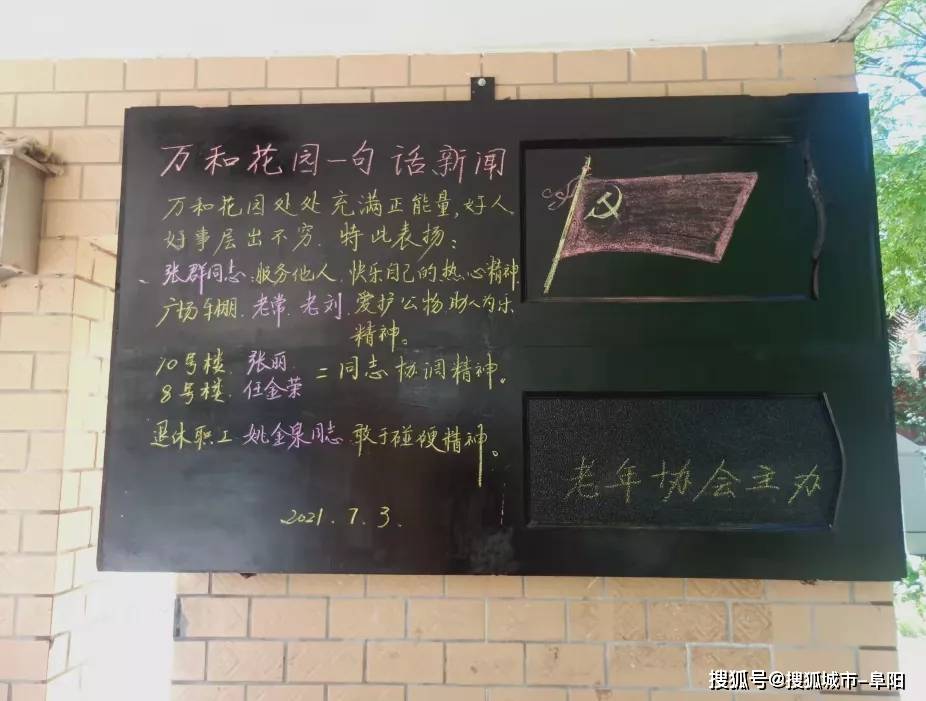 万和花园一句话新闻
万和花园处处充满正能量,好人
好事层出不穷.特此表扬:
、张群同志.服务他人、快乐自己的热心精神
广场车棚.老常.老刘.爱护公物.助人为乐
精神。
10号楼.张丽.
8号楼.任金荣
二同志协调精神。
退休职工姚金泉同志.敢于碰硬精神。
2021.7.3.
老年协会主办
搜狐号@搜狐城市-阜阳